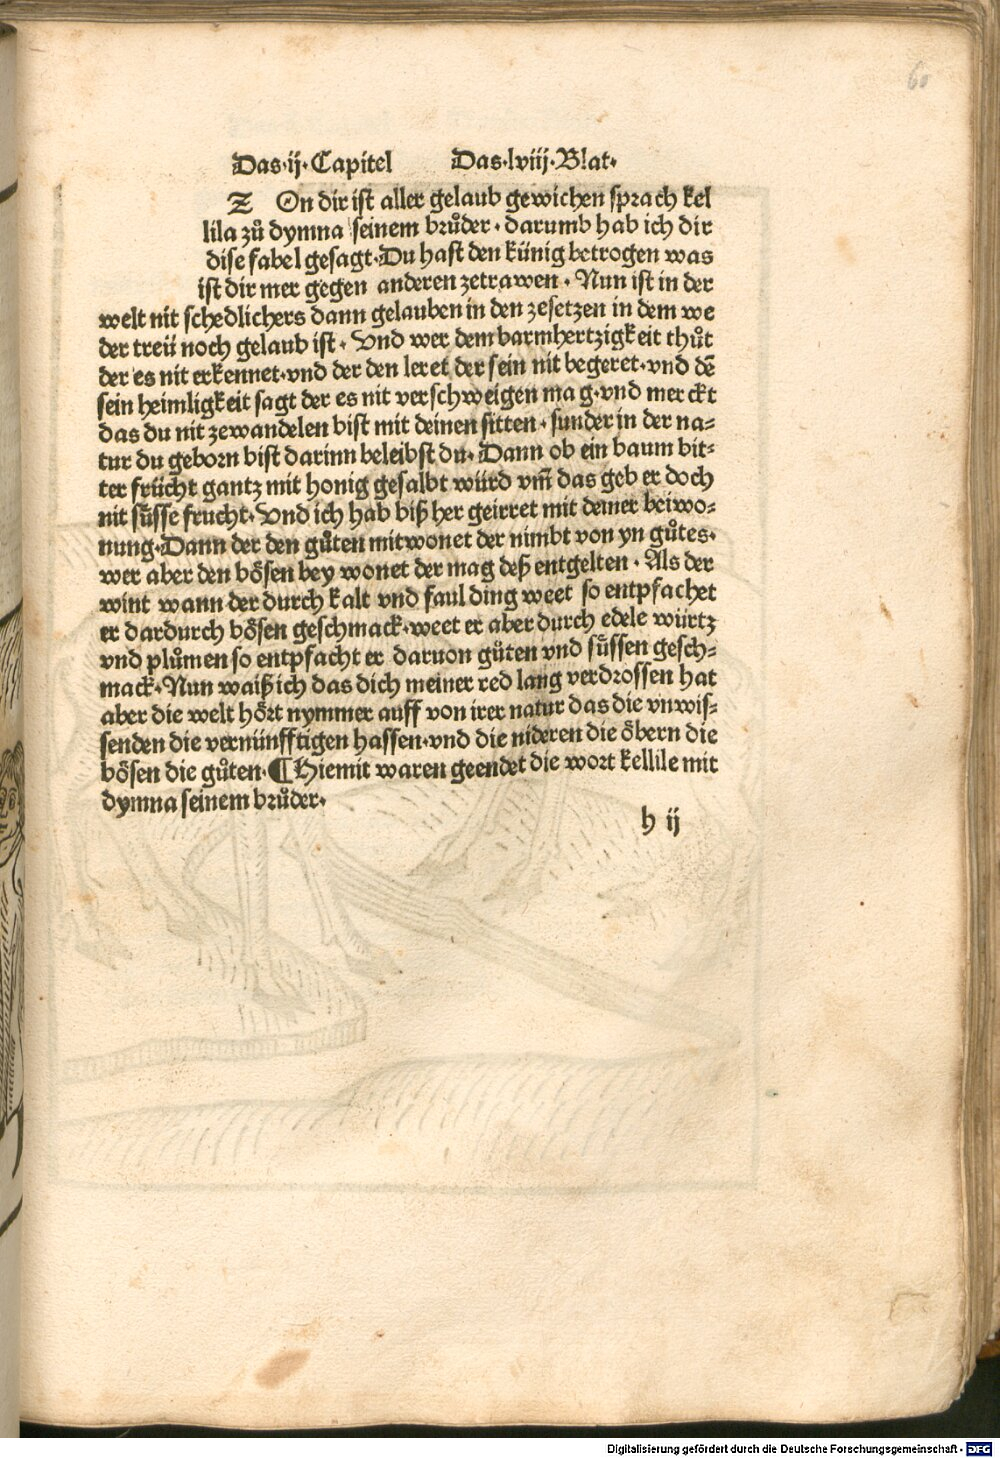 60
Das·ij·Capitel Das·lviij·Blat·
Z On dir ist aller gelaub gewichen sprach kel
lila zů dymna seinem brůder · darumb hab ich dir
dise fabel gesagt·Du hast den künig betrogen was
ist dir mer gegen anderen zetrawen · Nun ist in der
welt nit schedlichers dann gelauben in den zesetzen in dem we
der treü noch gelaub ist · Vnd wer dem barmhertzigkeit thůt
der es nit erkennet·vnd der den leret der sein nit begeret·vnd dē
sein heimligkeit sagt der es nit verschweigen mag·vnd merckt
das du nit zewandelen bist mit deinen sitten · sunder in der na⸗
tur du geborn bist darinn beleibst du· Dann ob ein baum bit⸗
ter frücht gantz mit honig gesalbt würd vm̄ das geb er doch
nit sűsse frucht· Vnd ich hab biß her geirret mit deiner beiwo⸗
nung·Dann der den gůten mitwonet der nimbt von yn gůtes·
wer aber den bősen bey wonet der mag deß entgelten · Als der
wint wann der durch kalt vnd faul ding weet so entpfachet
er dardurch bősen geschmack·weet er aber durch edele würtz
vnd plůmen so entpfacht er daruon gůten vnd sűssen gesch⸗
mack·Nun waiß ich das dich meiner red lang verdrossen hat
aber die welt hőrt nymmer auff von irer natur das die vnwis⸗
senden die vernünfftigen hassen·vnd die nideren die őbern die
bősen die gůten·¶Hiemit waren geendet die wort kellile mit
dymna seinem brůder·
h ij
Digitalisierung gefördert durch die Deutsche Forschungsgemeinschaft - DFG